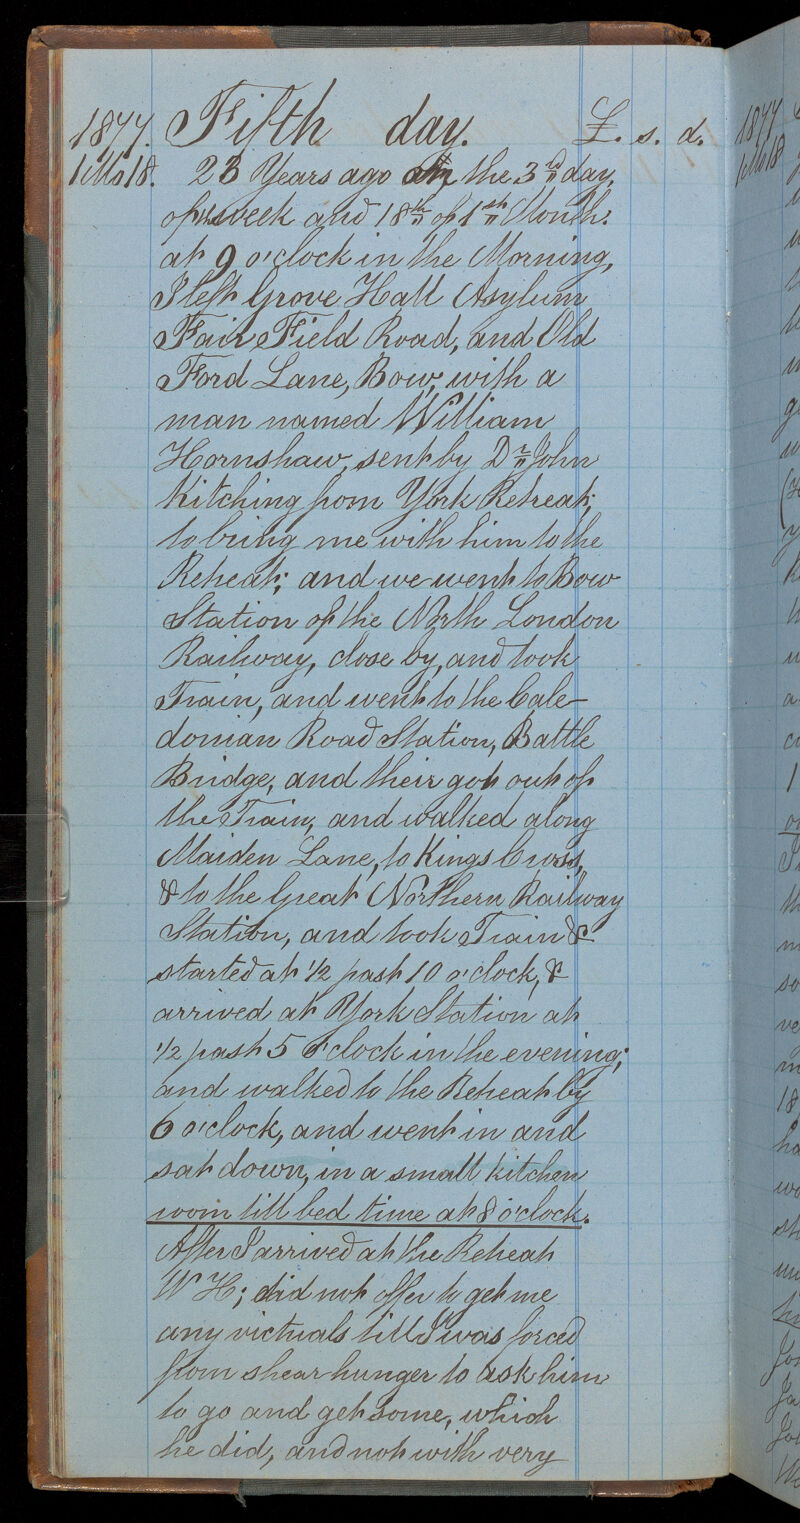 1877. Fifth day. £. s. d.
1 Mo 18. 23 Years ago on the 3rd day,
of week and 18th of 1st Month:
at 9 o'clock in the Morning,
I left Grove Hall Asylum
Fair Field Road, and Old
Ford Lane, Bow, with a
man named William
Hornshaw, sent by Dr John
Kitching from York Retreat;
to bring me with him to the
Retreat; and we went to Bow
Station of the North London
Railway, close by, and took
Train, and went to the Cale-
donian Road Station, Battle
Bridge, and their got out of
the Train; and walked along
Maiden Lane, to Kings Cross,
& to the Great Northern Railway
Station, and took Train &
started at 1/2 past 10 o'clock, &
arrived at York Station at
1/2 past 5 o'clock in the evening;
and walked to the Retreat by
6 o'clock, and went in and
sat down, in a small kitchen
room till bed time at 8 o'clock.
After I arrived at the Retreat
W H; did not offer to get me
any victuals till I was forced
from shear hunger to ask him
to go and get some, which
he did, and not with very
1877
1 Mo 18